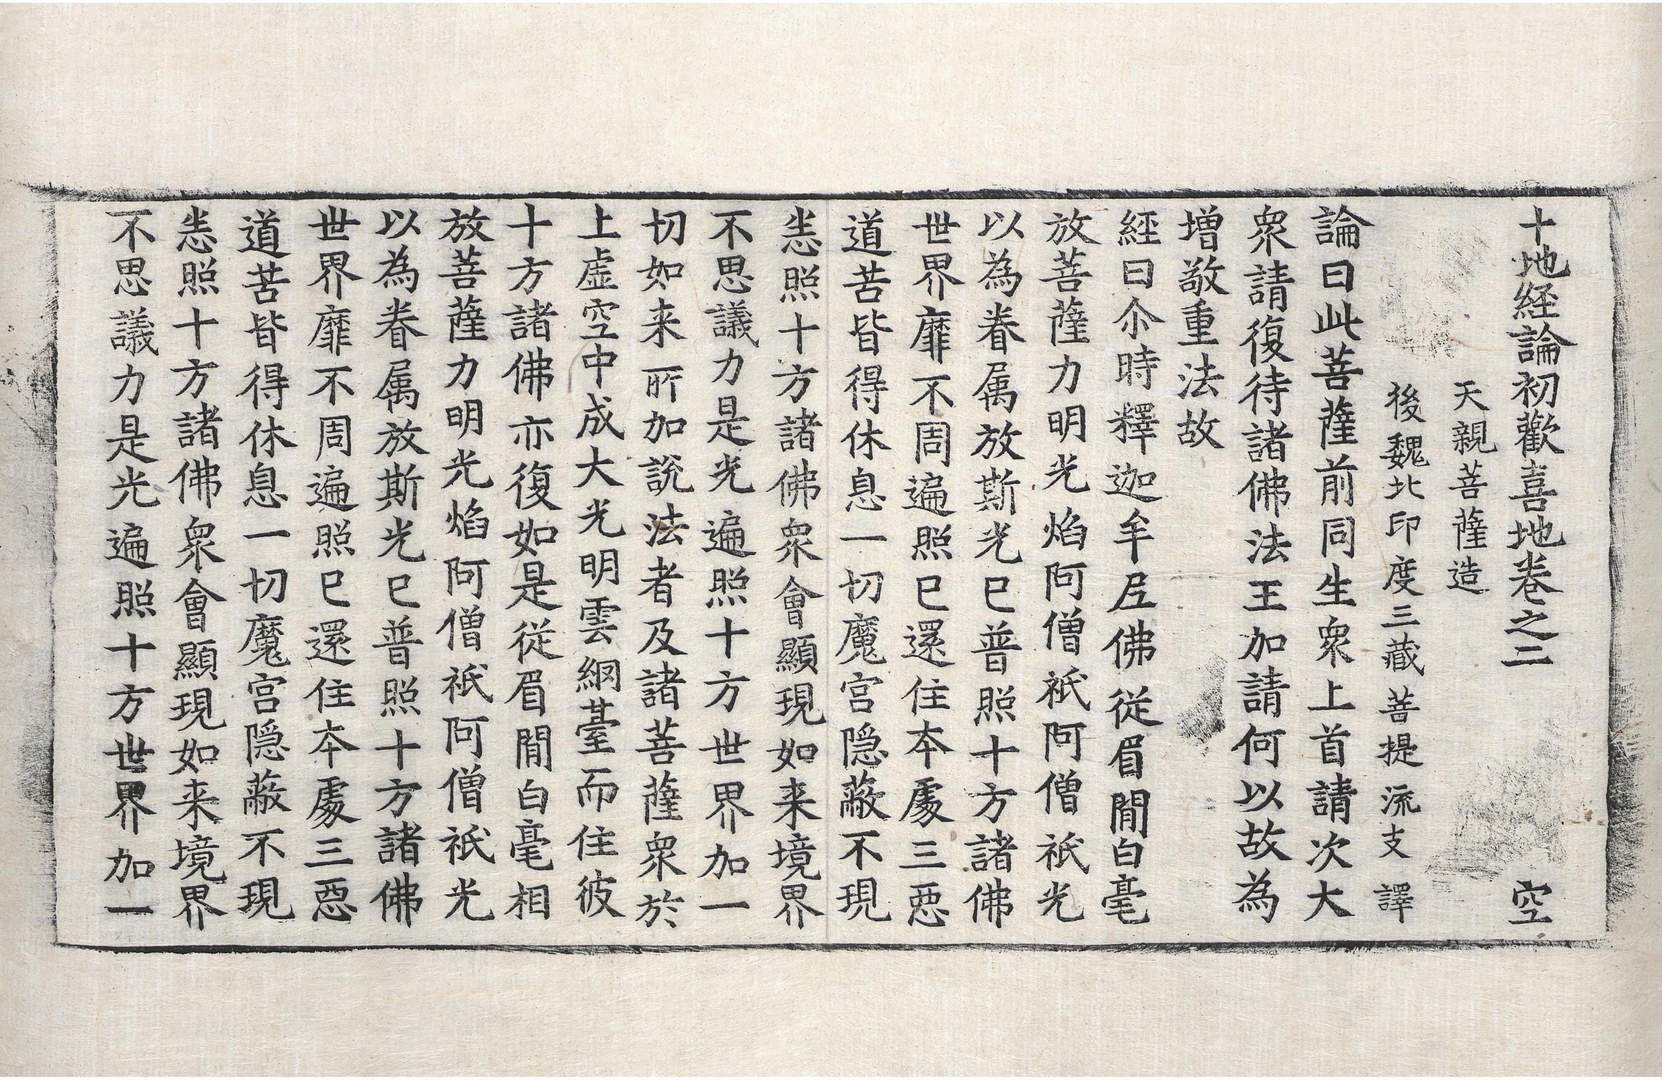 十地経論初歡喜地卷之二　空
天親菩薩造
後魏北印度三藏菩提流支　譯
論曰此菩薩前同生衆上首請次大
衆請復待諸佛法王加請何以故為
增敬重法故
經曰尒時釋迦牟尼佛從眉間白毫
放菩薩力明光焰阿僧祇阿僧祇光
以為眷属放斯光已普照十方諸佛
世界靡不周遍照已還住本處三惡
道苦皆得休息一切魔宫隐蔽不現
悉照十方諸佛衆會顯現如来境界
不思議力是光遍照十方世界加一
切如来所加說法者及諸菩薩衆於
上虚空中成大光明雲網臺而住彼
十方諸佛亦復如是從眉間白毫相
放菩薩力明光焰阿僧祇阿僧祇光
以為眷属放斯光已普照十方諸佛
世界靡不周遍照已還住本處三惡
道苦皆得休息一切魔宫隐蔽不現
悉照十方諸佛衆會顯現如来境界
不思議力是光遍照十方世界加一